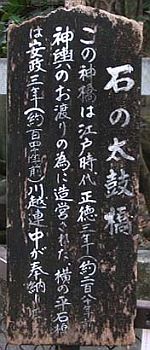 石の太鼓橋
この神橋は江戸時代正徳三年(約二百八十年前)
神輿のお渡りの為に造営された 横の平石橋
は安政三年(約百四十年前)川越連中が奉納し